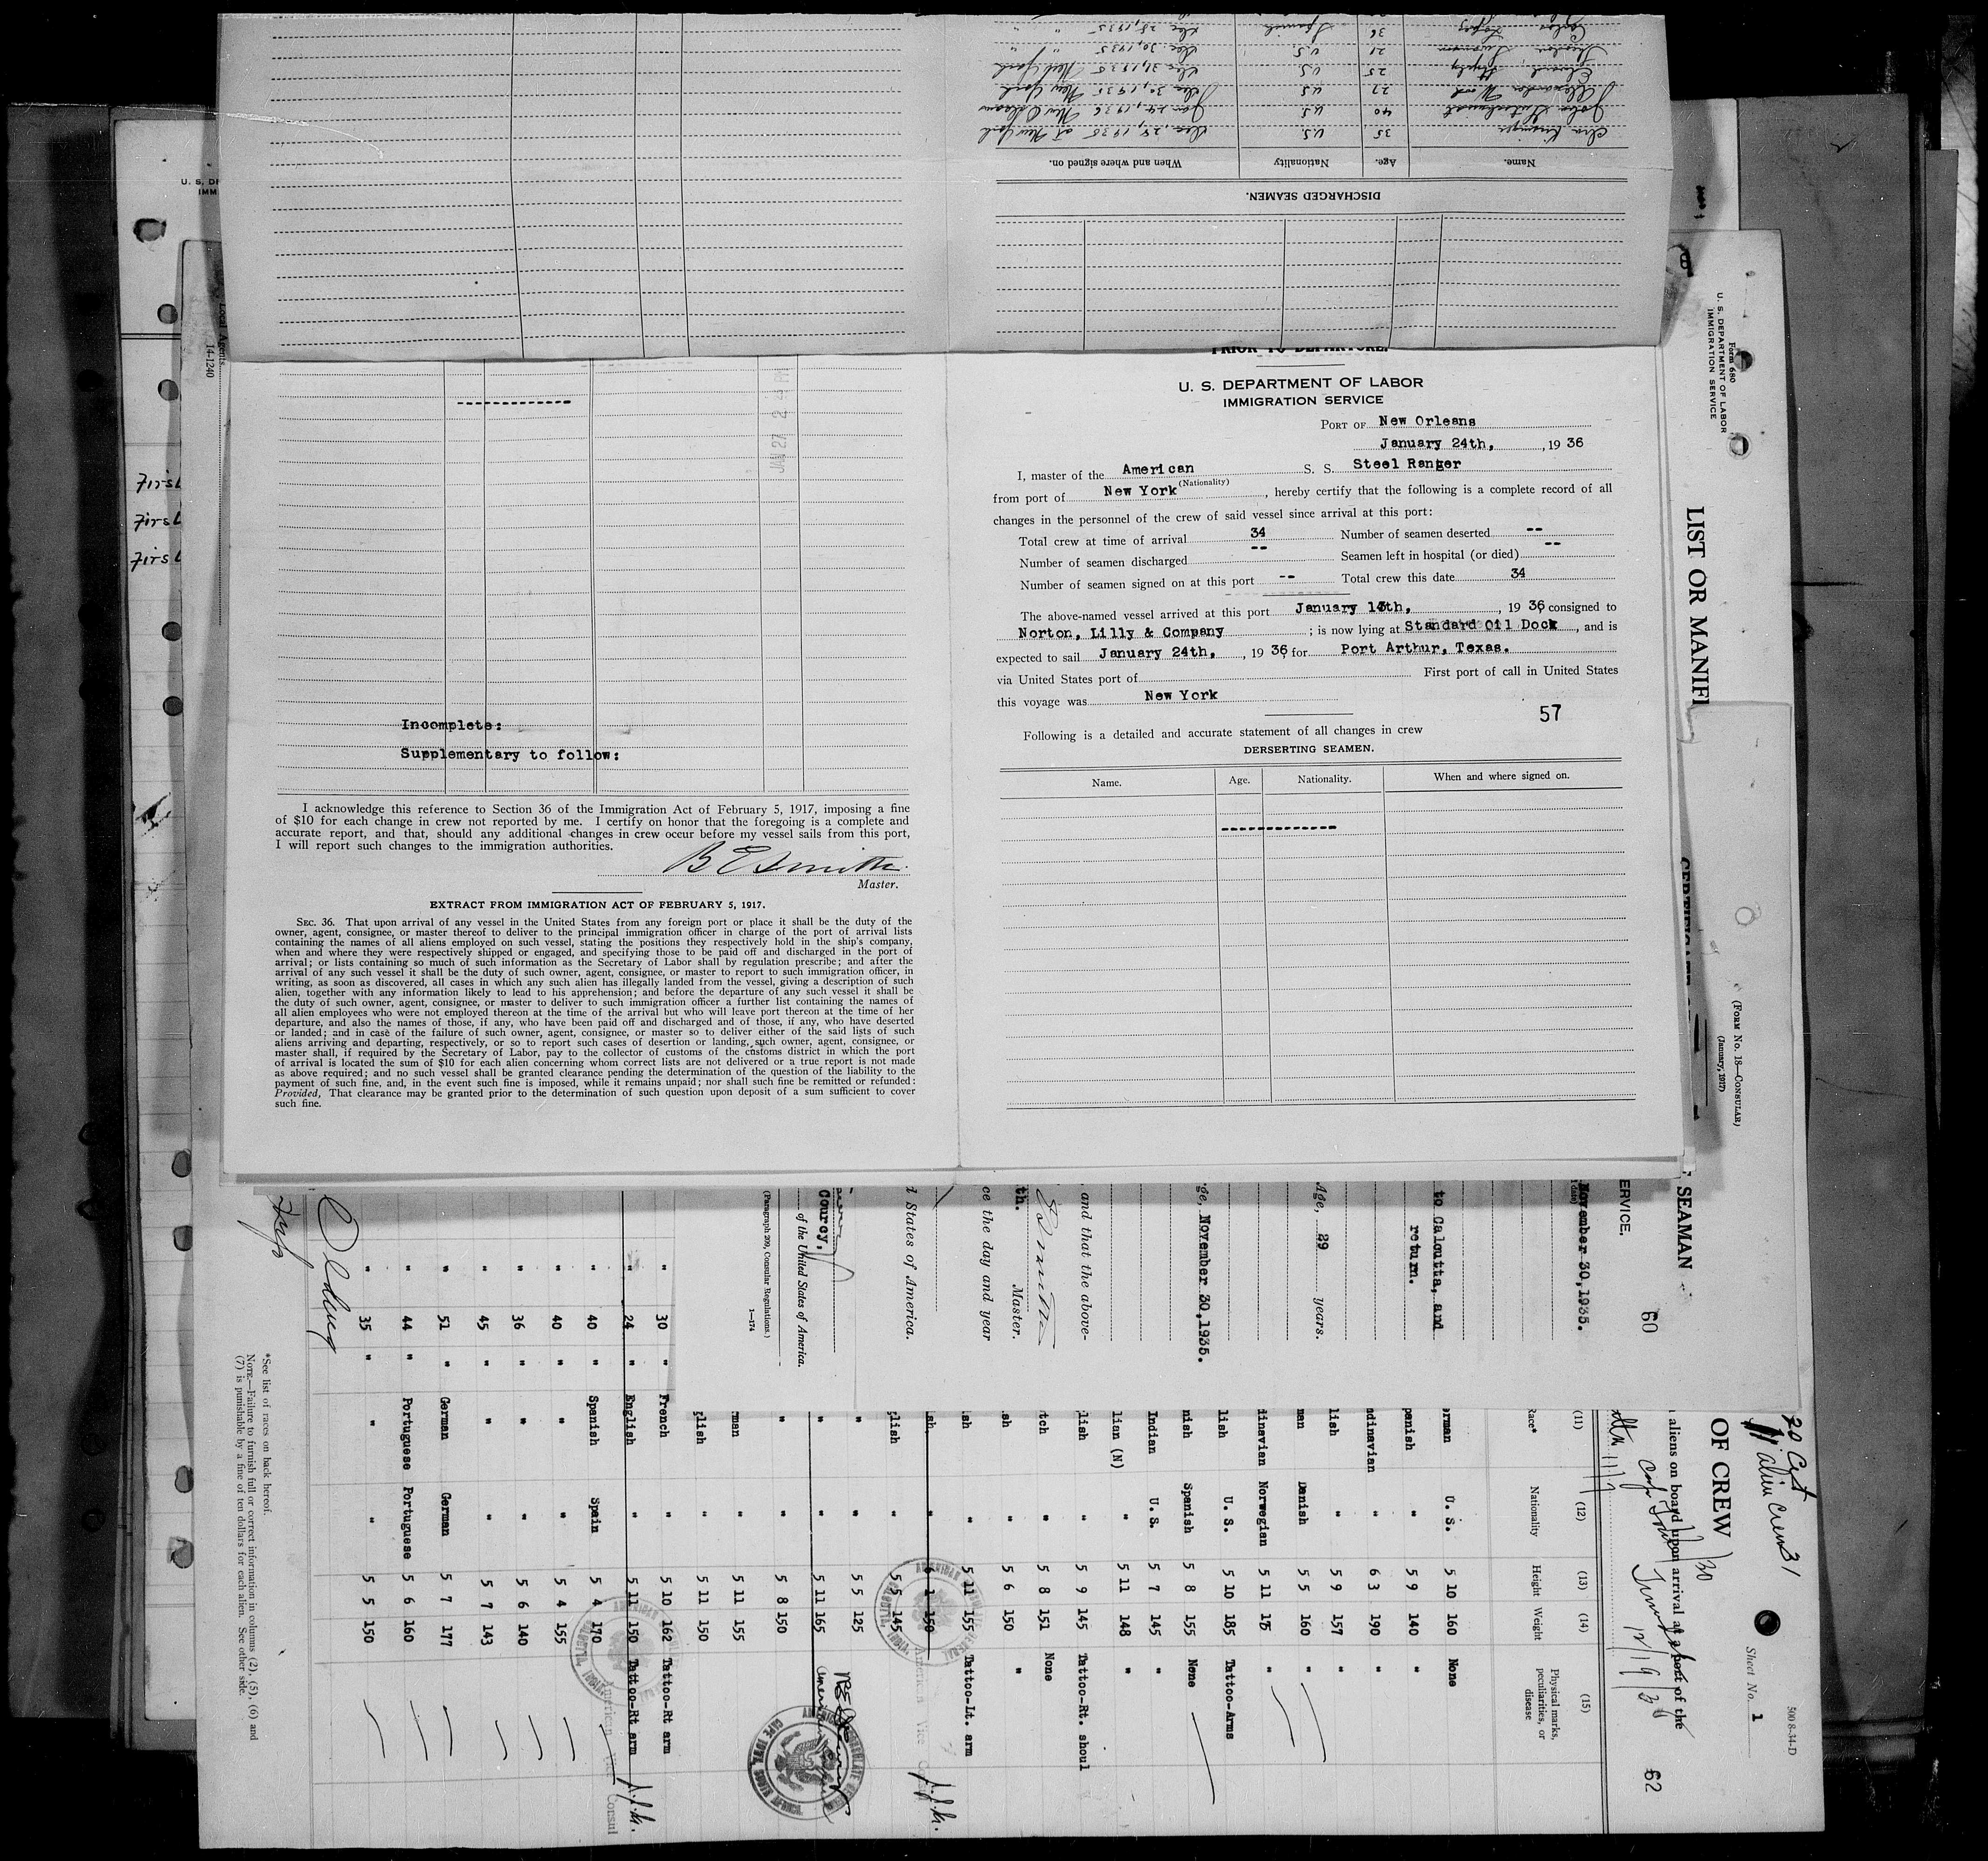 DISCHARGED SEAMEN.
Name. Age. Nationality When and where signed on.
35 U.S. Dec 28, 1935 at New York
John 40 U.S. Jan 24, 1936 New Orleans
Alexander Wood 27 U.S. Dec 30, 1935 New York
Edward 25 U.S. Dec 31, 1935 New York
21 U.S. Dec 30, 1935 " "
Carlos Lopez 36 Spanish Dec 28, 1935 " "
PRIOR TO DEPARTURE.
U. S. DEPARTMENT OF LABOR
IMMIGRATION SERVICE
PORT OF New Orleans
January 24th, , 19 36
I, master of the American S. S. Steel Ranger
(Nationality)
from port of New York , hereby certify that the following is a complete record of all
changes in the personnel of the crew of said vessel since arrival at this port:
Total crew at time of arrival 34 Number of seamen deserted --
Number of seamen discharged -- Seamen left in hospital (or died) --
Number of seamen signed on at this port -- Total crew this date 34
The above-named vessel arrived at this port January 13th, , 19 36, consigned to
Norton, Lilly & Company ; is now lying at Standard Oil Dock , and is
expected to sail January 24th, , 19 36, for Port Arthur, Texas.
via United States port of First port of call in United States
this voyage was New York
57
Following is a detailed and accurate statement of all changes in crew
DERSERTING SEAMEN.
Name. Age. Nationality. When and where signed on.
--------------
JAN 27 2 PM
--------------
Incomplete:
Supplementary to follow:
I acknowledge this reference to Section 36 of the Immigration Act of February 5, 1917, imposing a fine
of $10 for each change in crew not reported by me. I certify on honor that the foregoing is a complete and
accurate report, and that, should any additional changes in crew occur before my vessel sails from this port,
I will report such changes to the immigration authorities.
B E Smith
Master.
EXTRACT FROM IMMIGRATION ACT OF FEBRUARY 5, 1917.
SEC. 36. That upon arrival of any vessel in the United States from any foreign port or place it shall be the duty of the
owner, agent, consignee, or master thereof to deliver to the principal immigration officer in charge of the port of arrival lists
containing the names of all aliens employed on such vessel, stating the positions they respectively hold in the ship's company,
when and where they were respectively shipped or engaged, and specifying those to be paid off and discharged in the port of
arrival; or lists containing so much of such information as the Secretary of Labor shall by regulation prescribe; and after the
arrival of any such vessel it shall be the duty of such owner, agent, consignee, or master to report to such immigration officer, in
writing, as soon as discovered, all cases in which any such alien has illegally landed from the vessel, giving a description of such
alien, together with any information likely to lead to his apprehension; and before the departure of any such vessel it shall be
the duty of such owner, agent, consignee, or master to deliver to such immigration officer a further list containing the names of
all alien employees who were not employed thereon at the time of the arrival but who will leave port thereon at the time of her
departure, and also the names of those, if any, who have been paid off and discharged and of those, if any, who have deserted
or landed; and in case of the failure of such owner, agent, consignee, or master so to deliver either of the said lists of such
aliens arriving and departing, respectively, or so to report such cases of desertion or landing, such owner, agent, consignee, or
master shall, if required by the Secretary of Labor, pay to the collector of customs of the customs district in which the port
of arrival is located the sum of $10 for each alien concerning whom correct lists are not delivered or a true report is not made
as above required; and no such vessel shall be granted clearance pending the determination of the question of the liability to the
payment of such fine, and, in the event such fine is imposed, while it remains unpaid; nor shall such fine be remitted or refunded:
Provided, That clearance may be granted prior to the determination of such question upon deposit of a sum sufficient to cover
such fine.
U. S. D
IMM
Local Agents.
14-1240
First
First
First
Form 680
U. S. DEPARTMENT OF LABOR
IMMIGRATION SERVICE
LIST OR MANIF
OF CREW
20 Cit
11 alien Crew 31
Sheet No. 1
500 8-34-D
aliens on board upon arrival at a port of the
62
(FORM No. 18—CONSULAR)
(January, 1917)
SEAMAN
60
ERVICE.
November 30, 1935.
to Calcutta, and
return.
Age, 29 years.
ge, November 30, 1935.
and that the above-
th. Master.
ce the day and year
d States of America.
Courcy,
of the United States of America.
(Paragraph 209, Consular Regulations.)
1—174
(11) (12) (13) (14) (15)
Race* Nationality Height Weight Physical marks, peculiarities, or disease
rman U. S. 5 10 160 None
panish " 5 9 140 "
ndinavian " 6 3 190 "
lish " 5 9 157 "
man Danish 5 5 160 "
dinavian Norwegian 5 11 175 "
lish U. S. 5 10 185 Tattoo-Arms
nish Spanish 5 8 155 None
Indian U. S. 5 7 145 "
lion (N) " 5 11 148 "
lish " 5 9 145 Tattoo-Rt. shoul
tch " 5 8 151 None
sh " 5 6 150 "
sh " 5 11 155 Tattoo-Lt. arm
sh " 6 1 150
glish " 5 5 145
" " 5 5 125
" " 5 11 165
" " 5 8 150
rman " 5 11 155
glish " 5 11 150
" 30 " French " 5 10 162 Tattoo-Rt arm
" 24 " English " 5 11 150 Tattoo-Rt arm
" 40 " Spanish Spain 5 4 170
" 40 " " " 5 4 155
" 36 " " " 5 6 140
" 45 " " " 5 7 143
" 51 " German German 5 7 177
" 44 " Portuguese Portuguese 5 6 160
" 35 " " " 5 5 150
American Vice Consul
*See list of races on back hereof.
NOTE.—Failure to furnish full or correct information in columns (2), (5), (6) and
(7) is punishable by a fine of ten dollars for each alien. See other side.